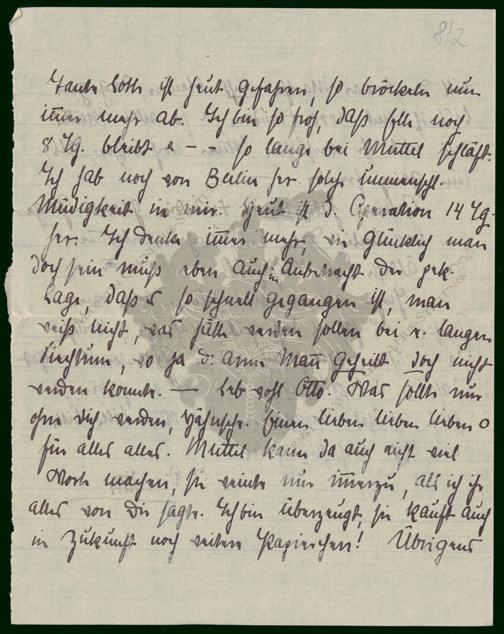 8/2
Tante Lotte ist heut gefahren, so bröckeln nun
immer mehr ab. Ich bin so froh, daß Elli noch
8 Tg. bleibt u – so lange bei Muttel schläft.
Ich hab noch von Berlin her solche unmenschl.
Müdigkeit in mir. Heut ist d. Operation 14 Tg.
her. Ich denke immer mehr, wie glücklich man
doch sein muß eben auch in Anbetracht der pek.
Lage, daß es so schnell gegangen ist, man
weiß nicht, was hätte werden sollen bei e. langen
Siechtum, wo ja d. arme Mann geheilt doch nicht
werden konnte. — Leb wohl Otto. Was sollte nur
ohne Dich werden, . Einen lieben lieben lieben o
für alles alles. Muttel kann da auch nicht viel
Worte machen, sie weinte nur immerzu, als ich ihr
alles von Dir sagte. Ich bin überzeugt, sie kauft auch
in Zukunft noch weitere Papierchen! Übrigens